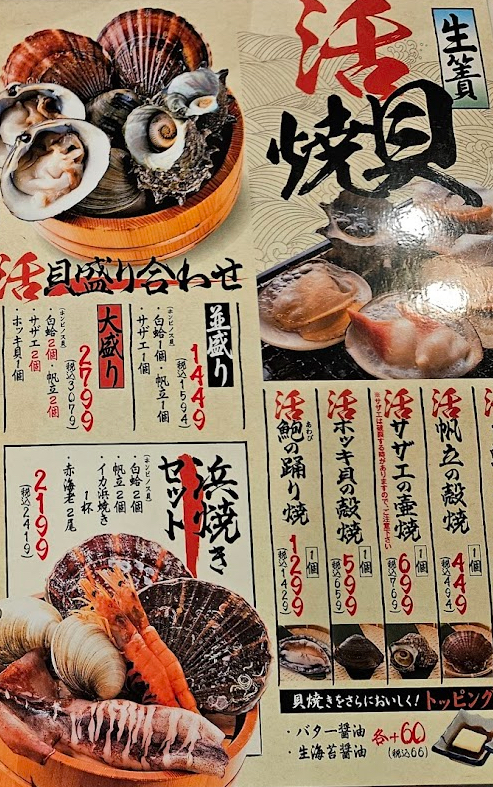 生簀
活
焼貝
活貝盛り合わせ
並盛り
1449
(税込1594)
(ホンビノス貝)
・白蛤1個・帆立1個
・サザエ1個
大盛り
2799
(税込3079)
(ホンビノス貝)
・白蛤2個・帆立2個
・サザエ2個
・ホッキ貝1個
浜焼き
セット
(ホンビノス貝)
・白蛤2個
・帆立2個
・イカ浜焼き
1杯
・赤海老2尾
2199
(税込2419)
活帆立の殻焼
1個
449
(税込494)
活サザエの壺焼
※サザエは破裂する時がありますので、ご注意下さい
1個
699
(税込769)
活ホッキ貝の殻焼
1個
599
(税込659)
活鮑の踊り焼
あわび
1個
1299
(税込1429)
貝焼きをさらにおいしく!トッピング
・バター醤油
・生海苔醤油
各+60
(税込66)